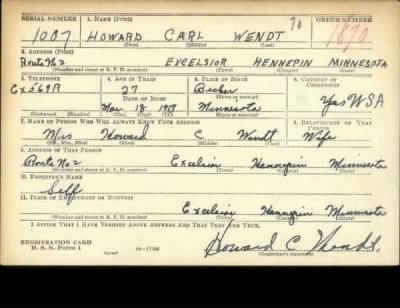 SERIAL NUMBER 1. NAME (Print) ORDER NUMBER
1007 HOWARD CARL WENDT 1870
(First) (Middle) (Last)
2. ADDRESS (Print)
Route No 2 EXCELSIOR HENNEPIN MINNESOTA
(Number and street or R. F. D. number) (Town) (County) (State)
3. TELEPHONE 4. AGE IN YEARS 5. PLACE OF BIRTH 6. COUNTRY OF CITIZENSHIP
27 Becker
DATE OF BIRTH
Mar 18 Minnesota USA
(Mo.) (Day) (Yr.) (State or country)
7. NAME OF PERSON WHO WILL ALWAYS KNOW YOUR ADDRESS 8. RELATIONSHIP OF THAT PERSON
Mrs Howard C Wendt Wife
(Mr., Mrs., Miss) (First) (Middle) (Last)
9. ADDRESS OF THAT PERSON
Route No 2 Excelsior Hennepin Minnesota
(Number and street or R. F. D. number) (Town) (County) (State)
10. EMPLOYER'S NAME
Self
11. PLACE OF EMPLOYMENT OR BUSINESS
Excelsior Hennepin Minnesota
(Number and street or R. F. D. number) (Town) (County) (State)
I AFFIRM THAT I HAVE VERIFIED ABOVE ANSWERS AND THAT THEY ARE TRUE.
REGISTRATION CARD
D. S. S. Form 1 Howard C Wendt
(Registrant's signature)